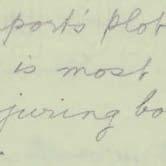 port's plot
is most
juring bo